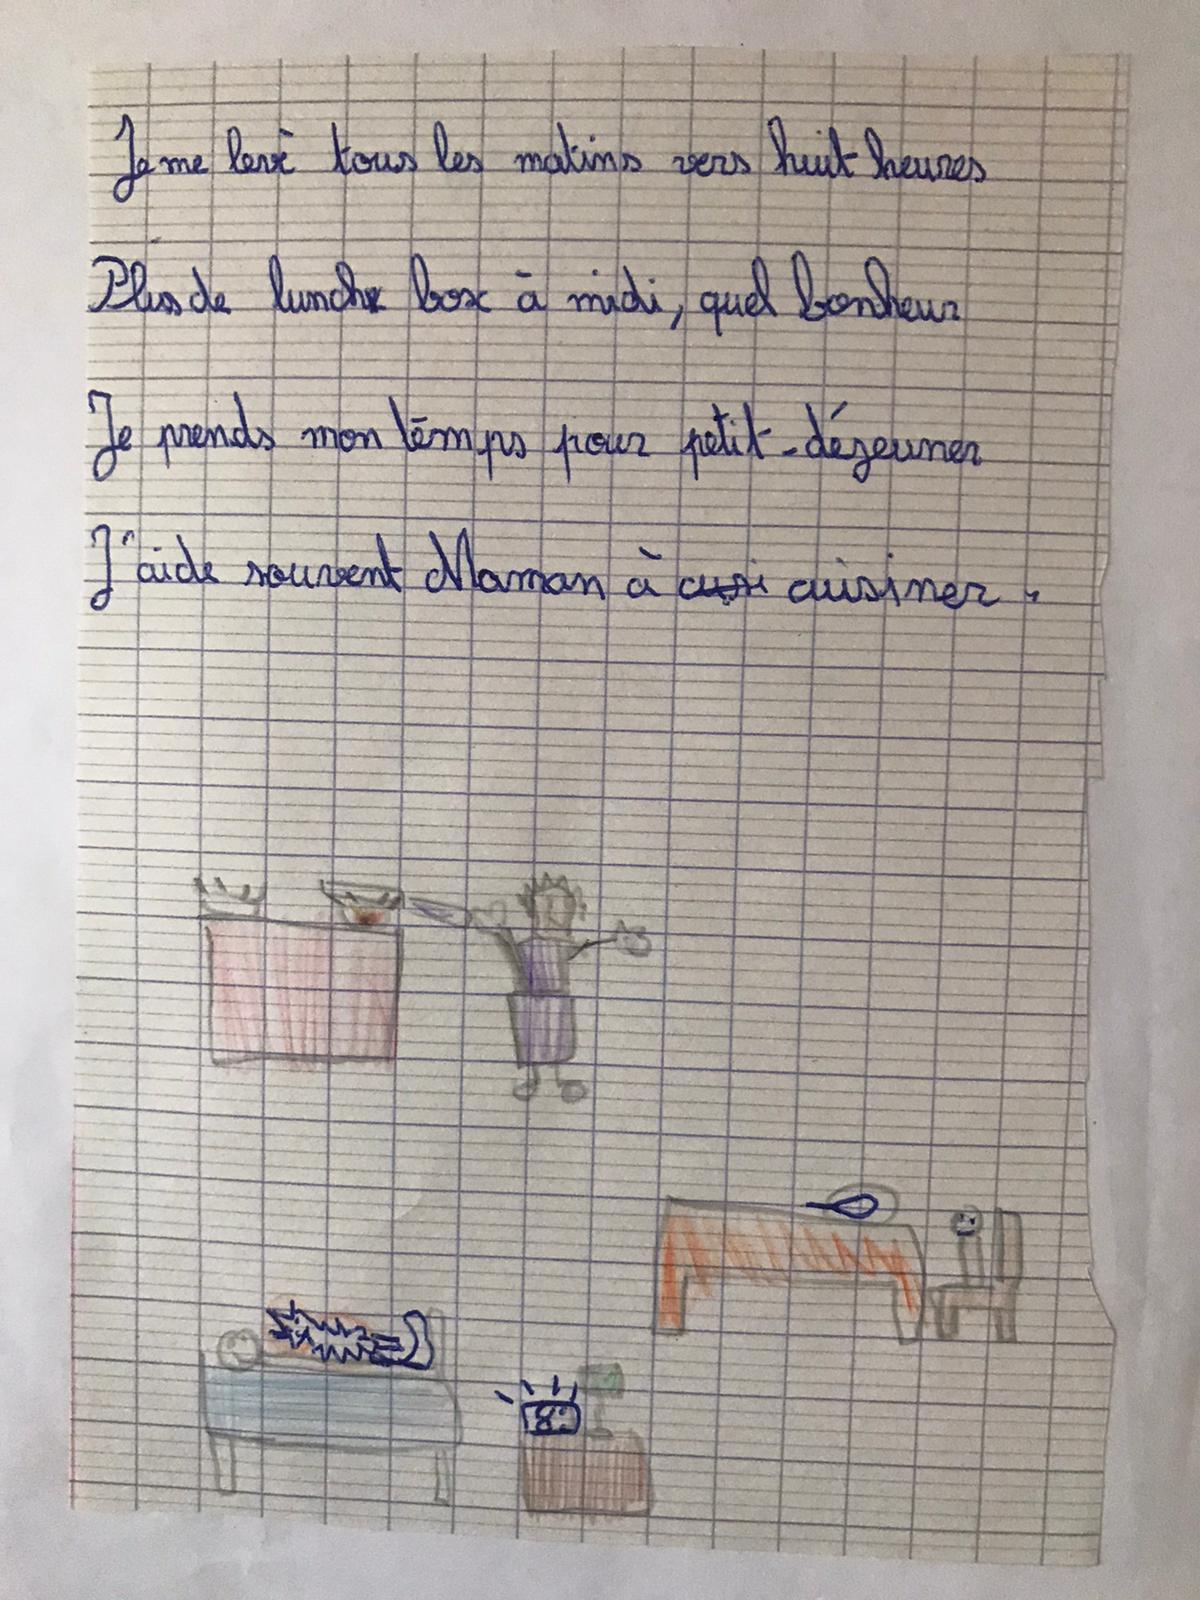 Je me lève tous les matins vers huit heures
Plus de lunch box à midi, quel bonheur
Je prends mon temps pour petit-déjeuner
J'aide souvent Maman à cusi cuisiner.
8: